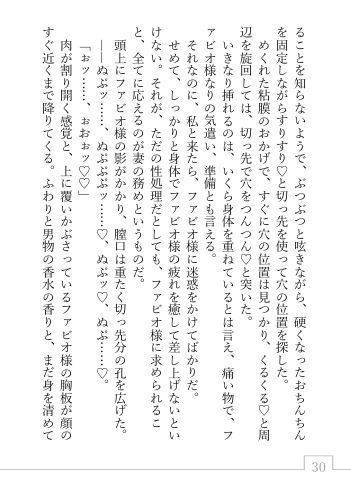 ることを知らないようで、ぶつぶつと呟きながら、硬くなったおちんちん
を固定しながらすりすり♡と切っ先を使って穴の位置を探した。
めくれた粘膜のおかげで、すぐに穴の位置は見つかり、くるくる♡と周
辺を旋回しては、切っ先で穴をつんつん♡と突いた。
いきなり挿れるのは、いくら身体を重ねているとは言え、痛い物で、フ
ァビオ様なりの気遣い、準備とも言える。
それなのに、私と来たら、ファビオ様に迷惑をかけてばかりだ。
せめて、しっかりと身体でファビオ様の疲れを癒して差し上げないとい
けない。それが、ただの性処理だとしても、ファビオ様に求められるこ
と、全てに応えるのが妻の務めというものだ。
頭上にファビオ様の影がかかり、膣口は重たく切っ先分の孔を広げた。
――ぬぷッ……、ぬぷぷぷッ……♡、ぬぷッ♡、ぬぷ……♡。
「ぉッ……、ぉおぉッ♡♡」
肉が割り開く感覚と、上に覆いかぶさっているファビオ様の胸板が顔の
すぐ近くまで降りてくる。ふわりと男物の香水の香りと、まだ身を清めて
30